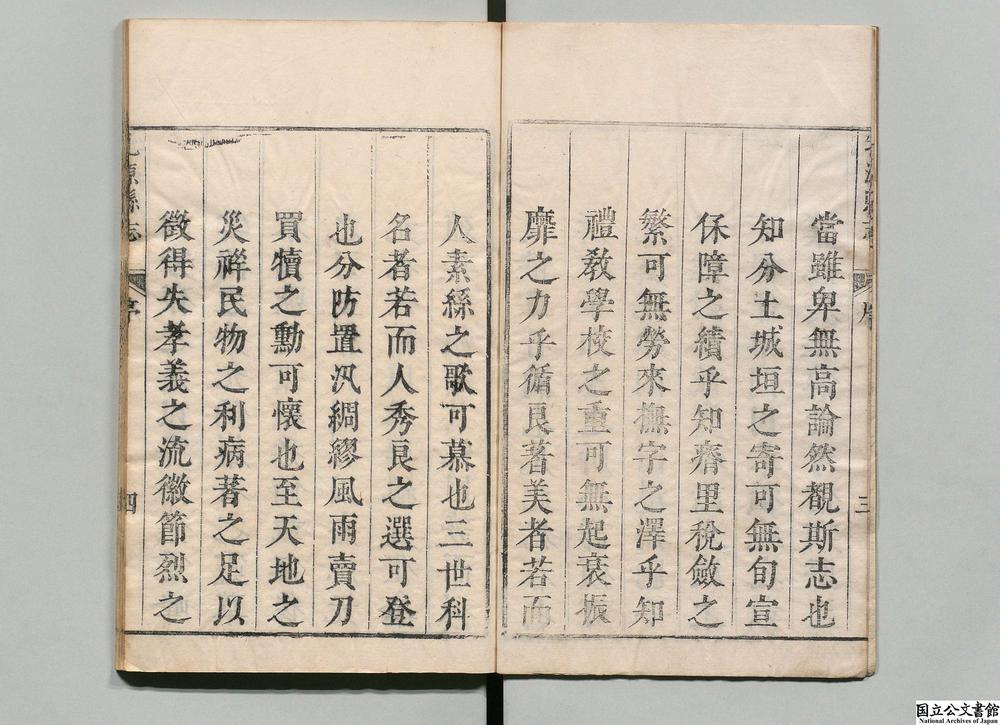 當雖卑無高論然覩斯志也
知分土城垣之寄可無旬宣
保障之績乎知瘠里稅斂之
繁可無勞來撫字之澤乎知
禮教學校之重可無起衰振
靡之力乎循良著美者若而
人素絲之歌可慕也三世科
名者若而人秀良之選可登
也分防置汛綢繆風雨賣刀
買犢之勳可懷也至天地之
災祥民物之利病著之足以
徵得失孝義之流徽節烈之
源縣志
序
四
三
国立公文書館
National Archives of Japan